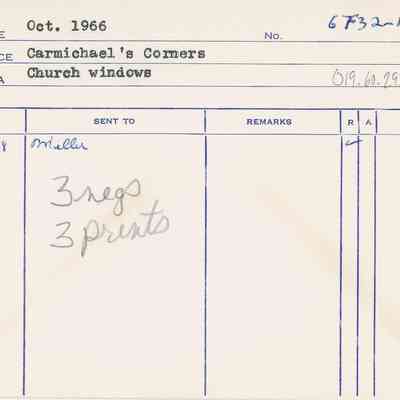 E Oct. 1966 No. 6F32-
CE Carmichael's Corners
A Church windows 019.60.29
SENT TO REMARKS R A
8 Miller ✓
3 negs
3 prints